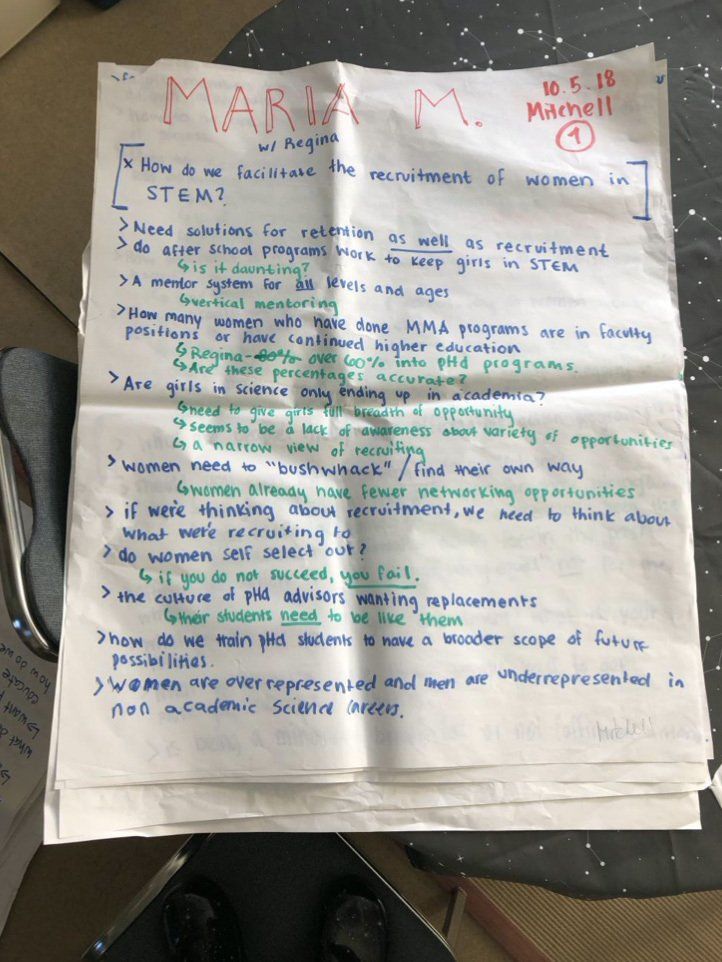 MARIA M.
10.5.18
Mitchell
1
w/ Regina
x How do we facilitate the recruitment of women in
STEM?
> Need solutions for retention as well as recruitment
> do after school programs work to keep girls in STEM
↳ is it daunting?
> A mentor system for all levels and ages
↳ vertical mentoring
> How many women who have done MMA programs are in faculty
positions or have continued higher education
↳ Regina - 80% over 60% into pHd programs.
↳ Are these percentages accurate?
> Are girls in science only ending up in academia?
↳ need to give girls full breadth of opportunity
↳ seems to be a lack of awareness about variety of opportunities
↳ a narrow view of recruiting
> women need to "bushwhack" / find their own way
↳ women already have fewer networking opportunities
> if we're thinking about recruitment, we need to think about
what we're recruiting to
> do women self select out?
↳ if you do not succeed, you fail.
> the culture of pHd advisors wanting replacements
↳ their students need to be like them
> how do we train pHd students to have a broader scope of future
possibilities.
> women are overrepresented and men are underrepresented in
non academic science careers.
Mitchell
how do we
educate
↳ want
what do